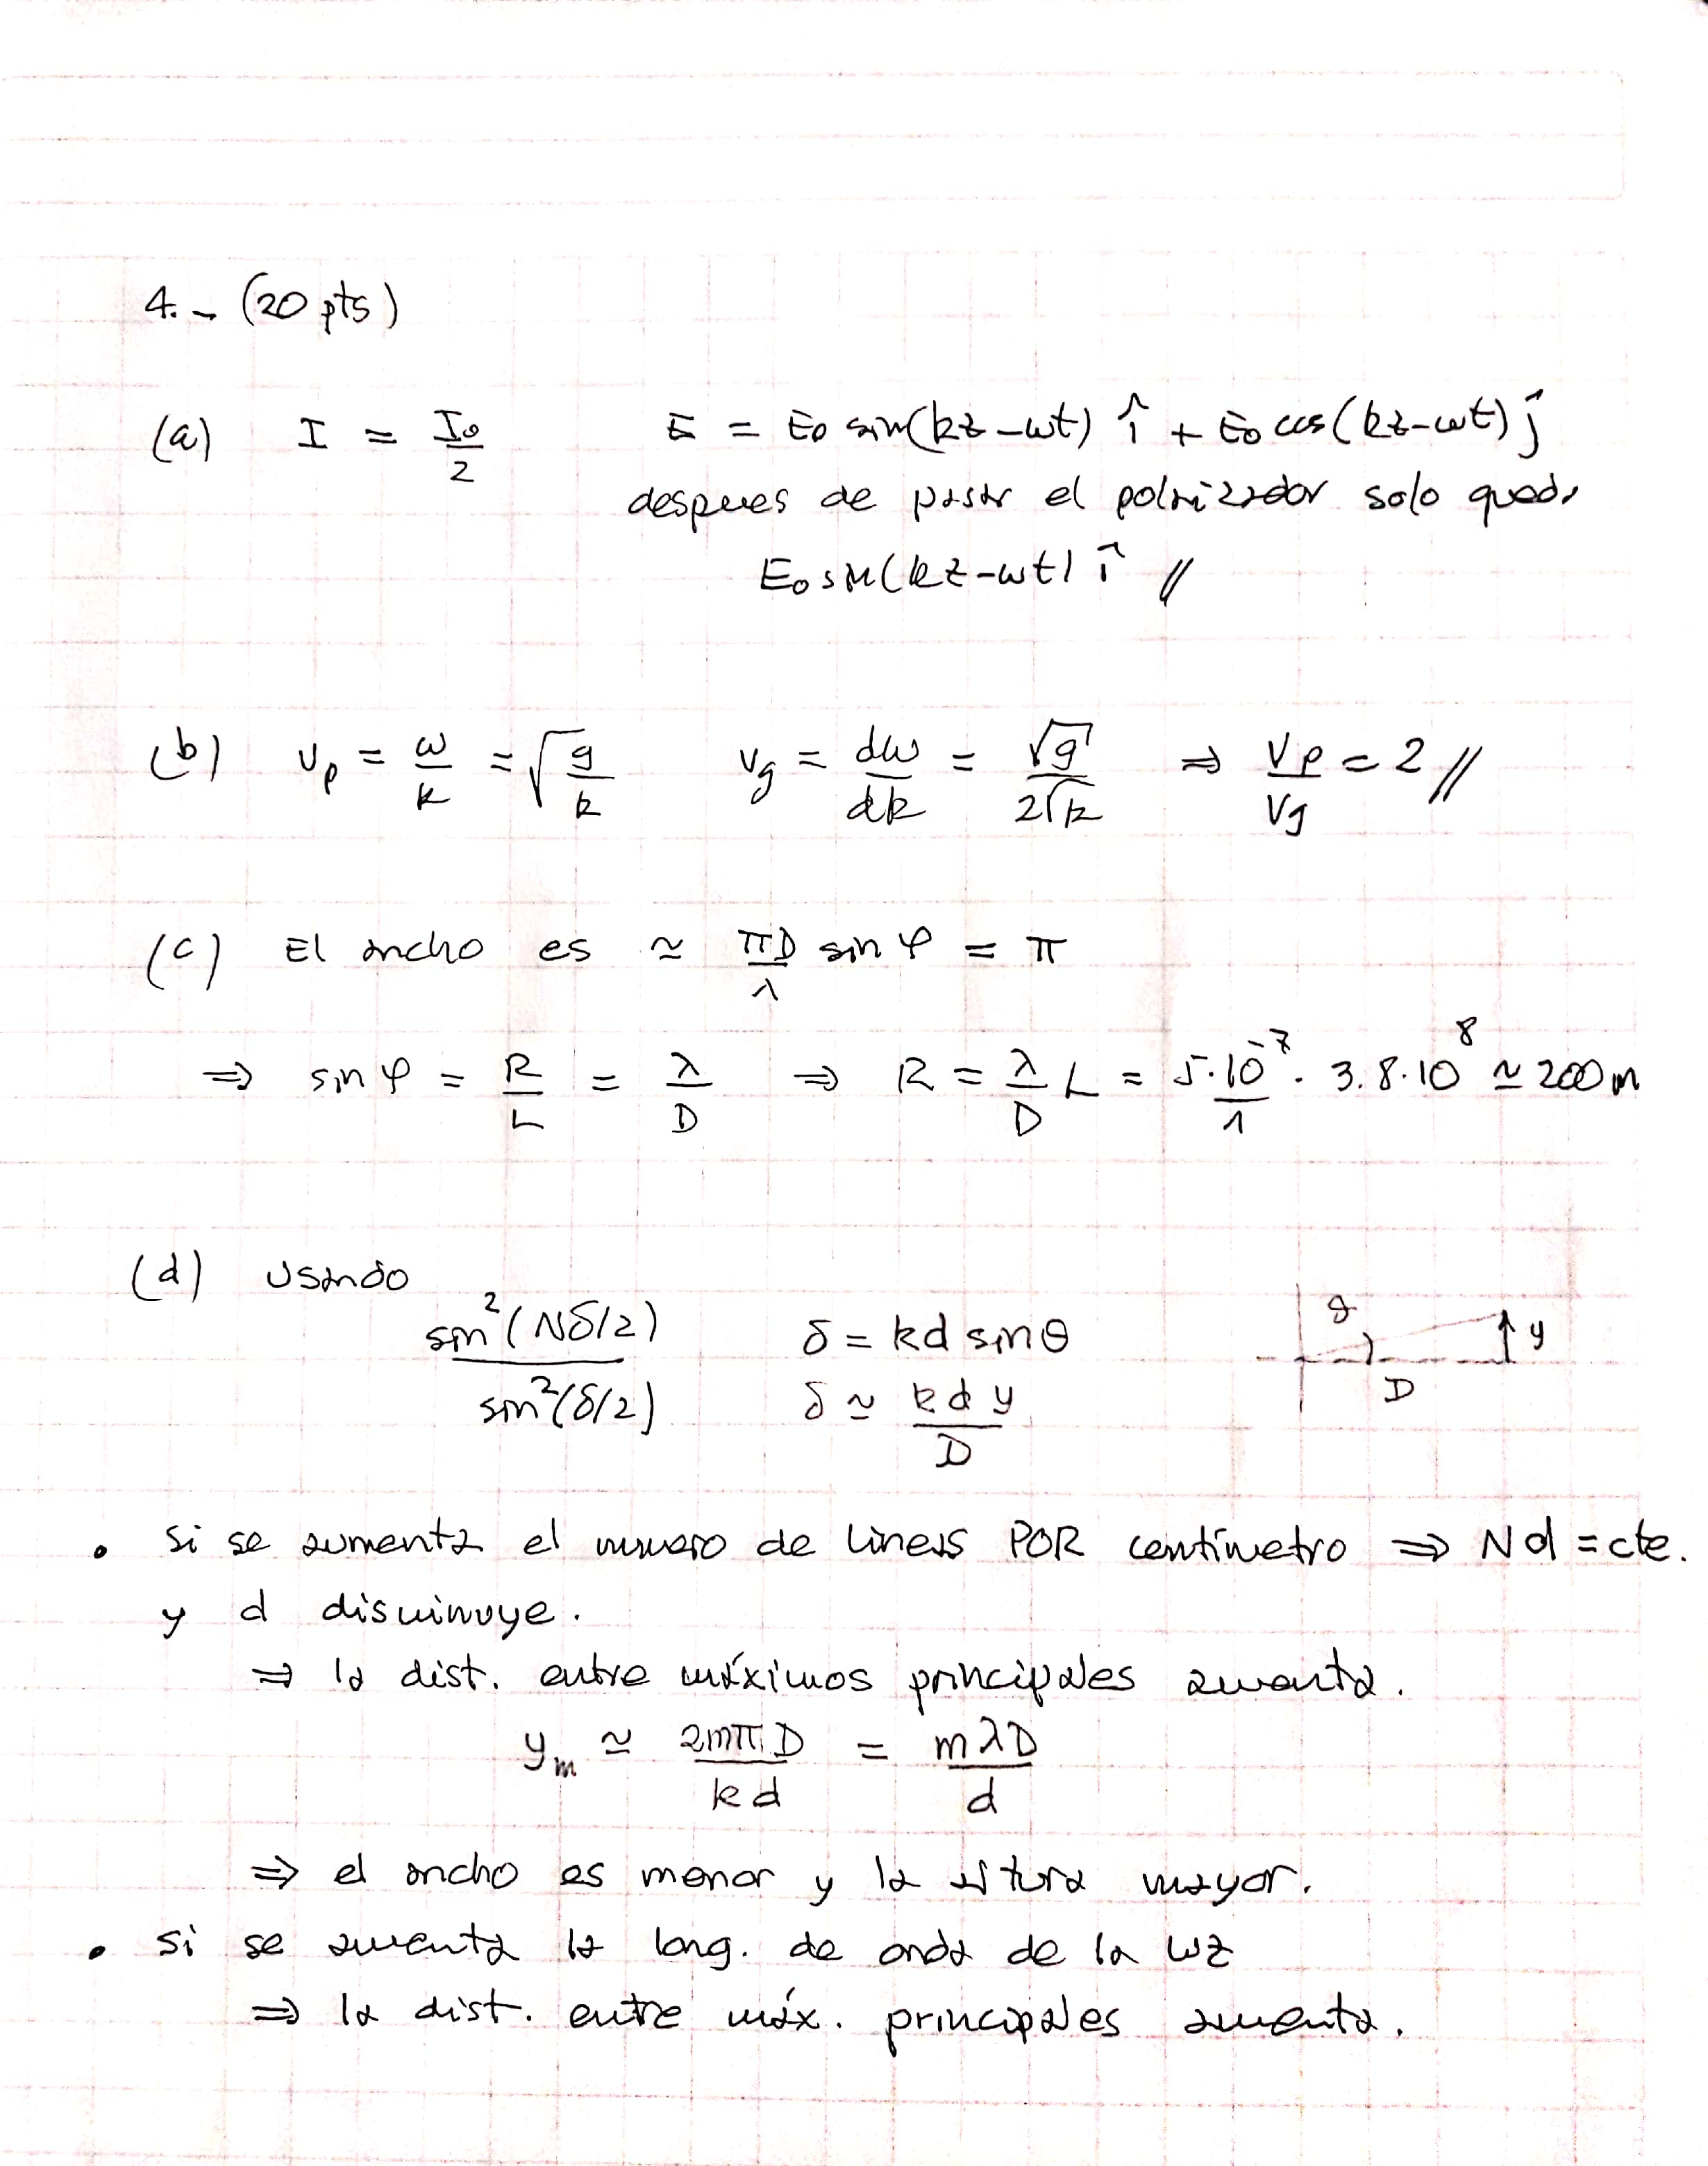 4.- (20 pts)
(a) I = I₀/2 E = E₀ sin(kz-wt) î + E₀ cos(kz-wt) ĵ
despues de pasar el polarizador solo queda
E₀ sin(kz-wt) î //
(b) vₚ = ω/k = √(g/k) v_g = dω/dk = √g/(2√k) ⇒ vₚ/v_g = 2 //
(c) El ancho es ≃ πD/λ sin φ = π
⇒ sin φ = R/L = λ/D ⇒ R = λ/D L = 5·10⁻⁷/1 · 3.8·10⁸ ≃ 200 m
(d) Usando
sin²(Nδ/2)/sin²(δ/2) δ = kd sinθ
δ ≃ kdy/D
θ y D
• Si se aumenta el numero de lineas POR centímetro ⇒ Nd = cte.
y d disminuye.
⇒ la dist. entre máximos principales aumenta.
yₘ ≃ 2mπD/kd = mλD/d
⇒ el ancho es menor y la altura mayor.
• Si se aumenta la long. de onda de la luz
⇒ la dist. entre máx. principales aumenta.